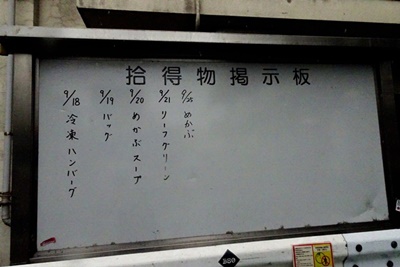 拾得物掲示板
9/18 冷凍ハンバーグ
9/19 バッグ
9/20 めかぶスープ
9/21 リーフグリーン
9/25 めかぶ